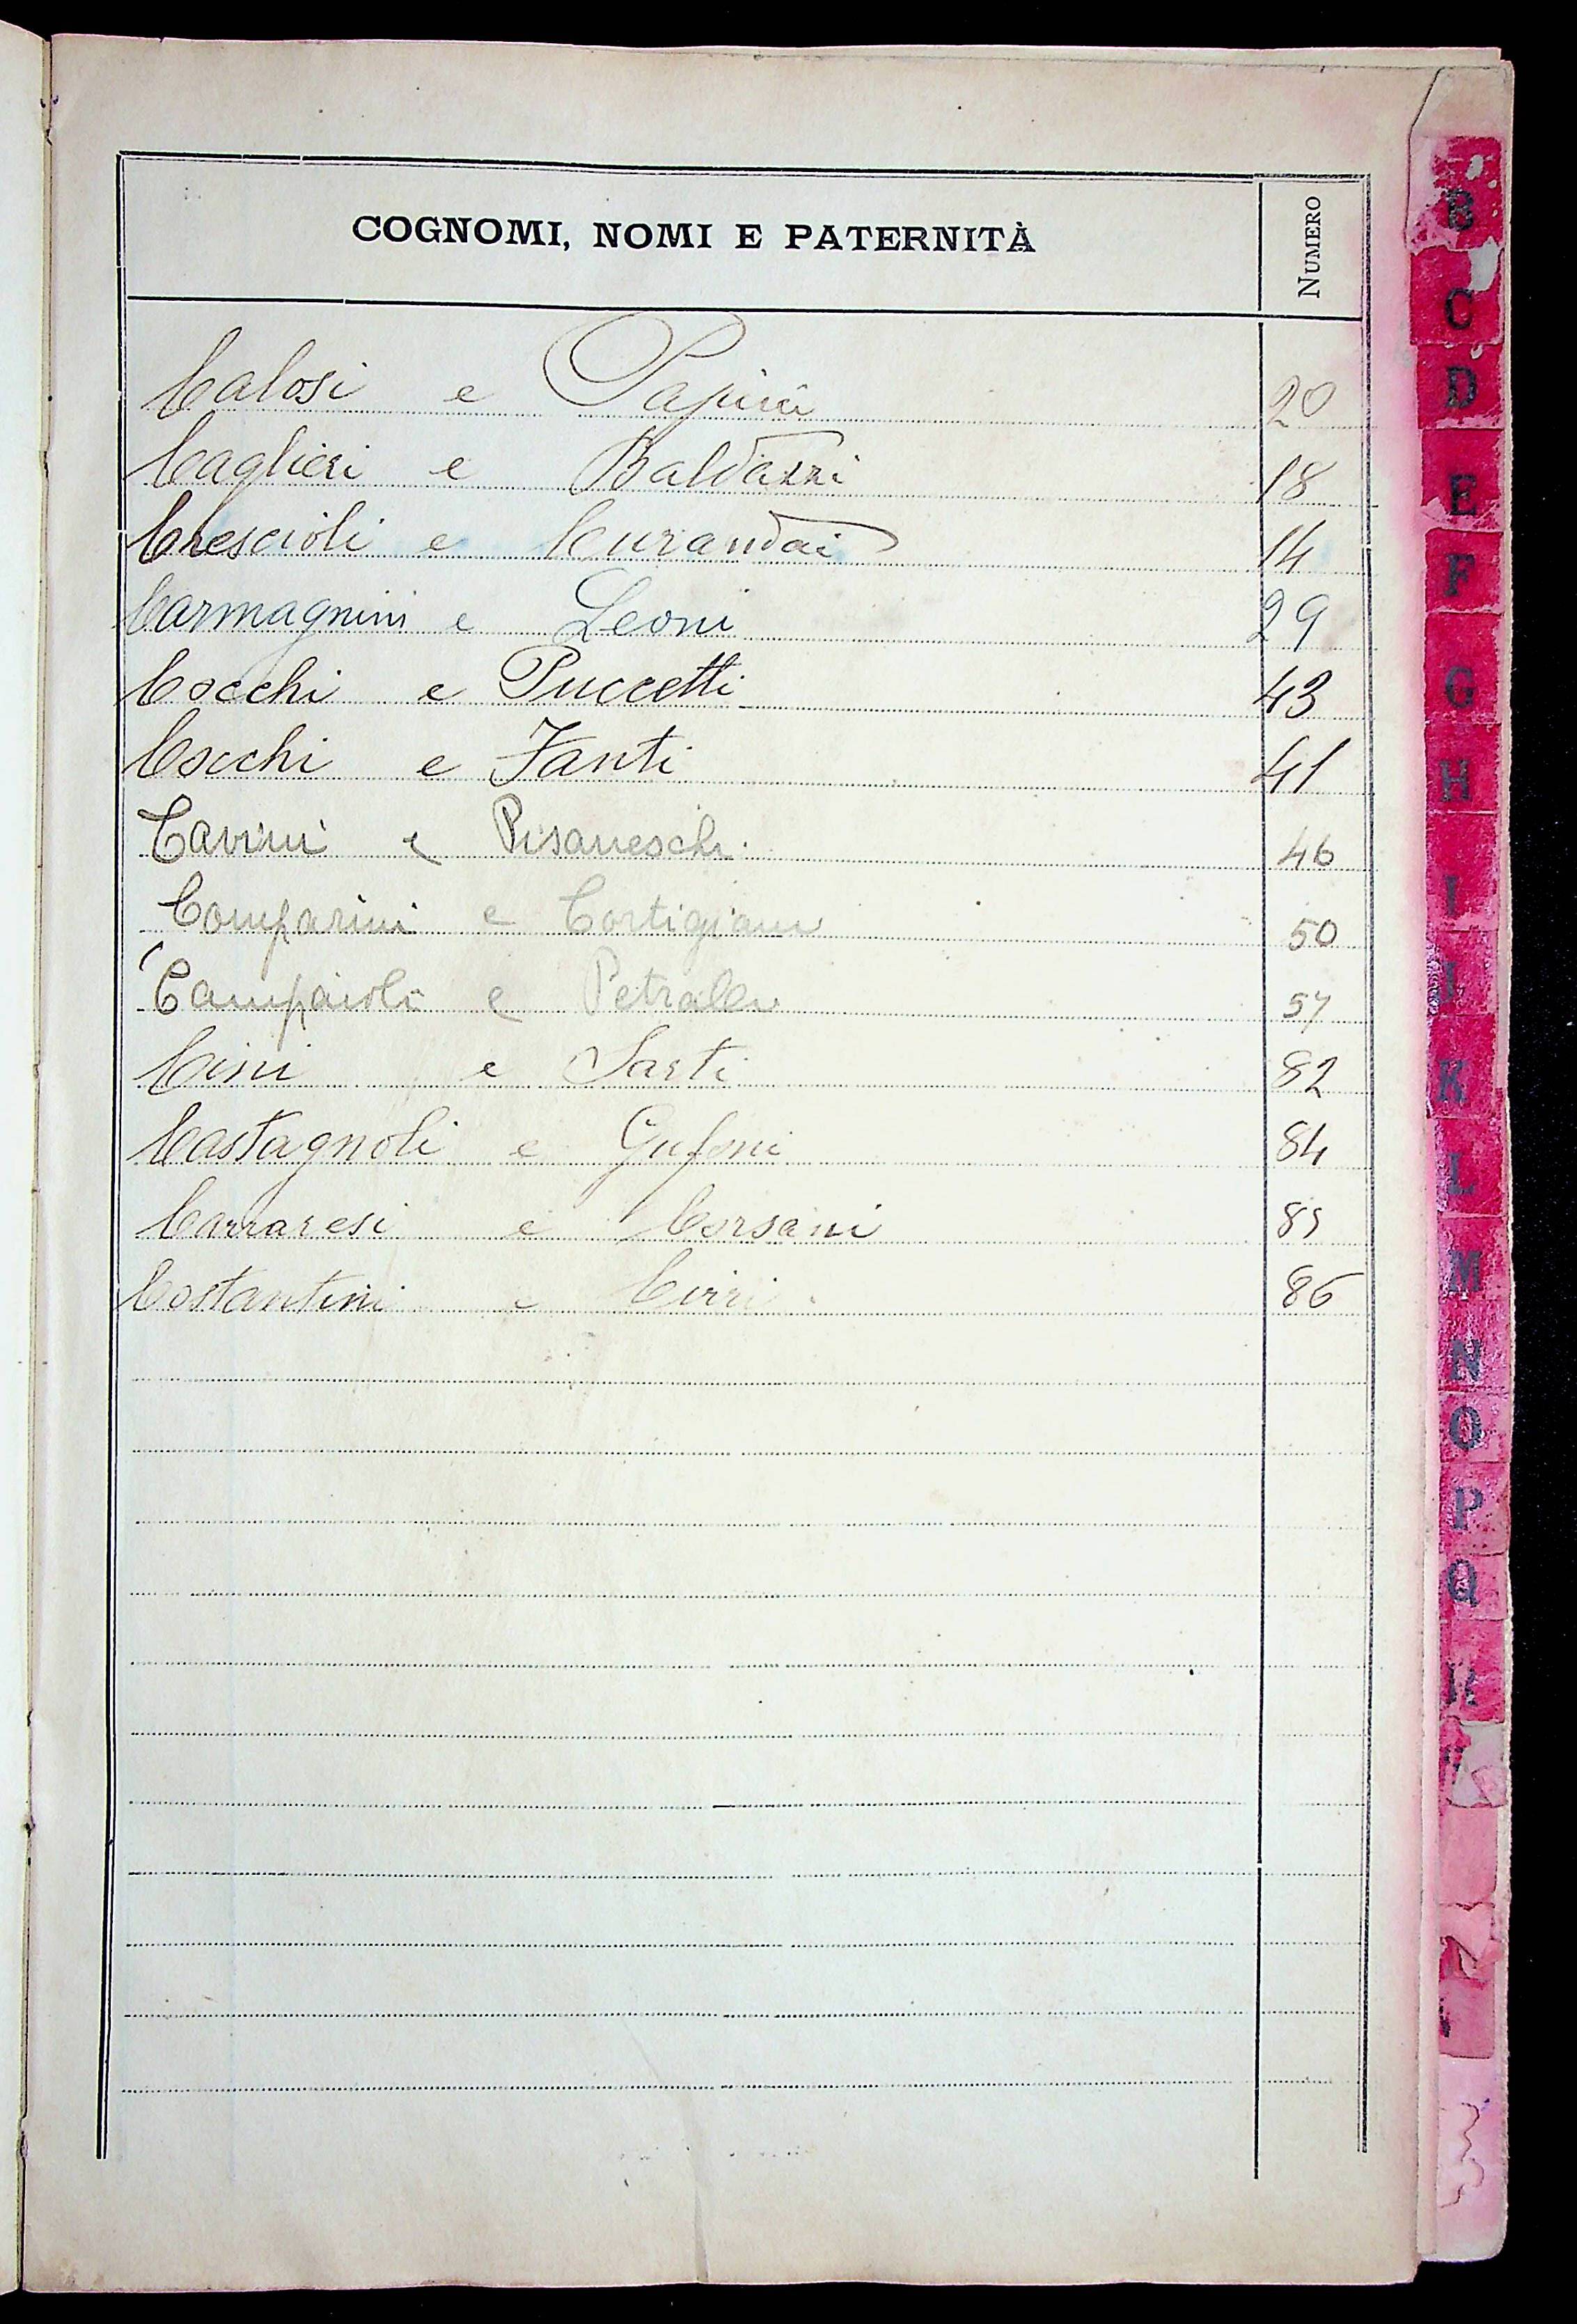 COGNOMI, NOMI E PATERNITÀ NUMERO
Calosi e Papini 20
Caglieri e Baldazzi 18
Crescioli e Curandai 14
Carmagnini e Leoni 29
Cocchi e Puccetti 43
Cocchi e Fanti 41
Cavini e Pisaneschi 46
Comparini e Cortigiani 50
Campaioli e Petralli 57
Cini e Sarti 82
Castagnoli e Gufoni 84
Carraresi e Corsani 85
Costantini e Cirri 86
B
C
D
E
F
G
H
I
J
K
L
M
N
O
P
Q
R